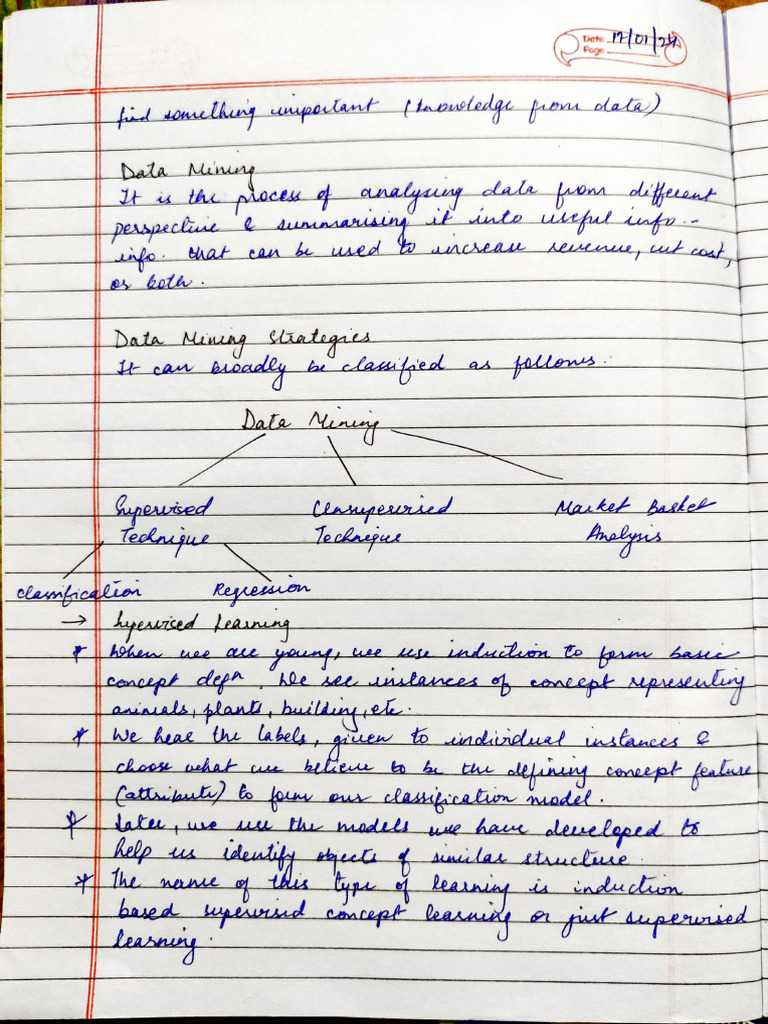 Date 17/01/24
Page
find something important (knowledge from data)
Data Mining
It is the process of analysing data from different
perspective & summarising it into useful info.-
info. that can be used to increase revenue, cut cost,
or both.
Data Mining Strategies
It can broadly be classified as follows.
Data Mining
Supervised Unsupervised Market Basket
Technique Technique Analysis
Classification Regression
→ Supervised Learning
* When we are young, we use induction to form basic
concept defn. We see instances of concept representing
animals, plants, building, etc.
* We hear the labels, given to individual instances &
choose what we believe to be the defining concept feature
(attribute) to form our classification model.
* Later, we use the models we have developed to
help us identify objects of similar structure.
* The name of this type of learning is induction
based supervised concept learning or just supervised
learning.